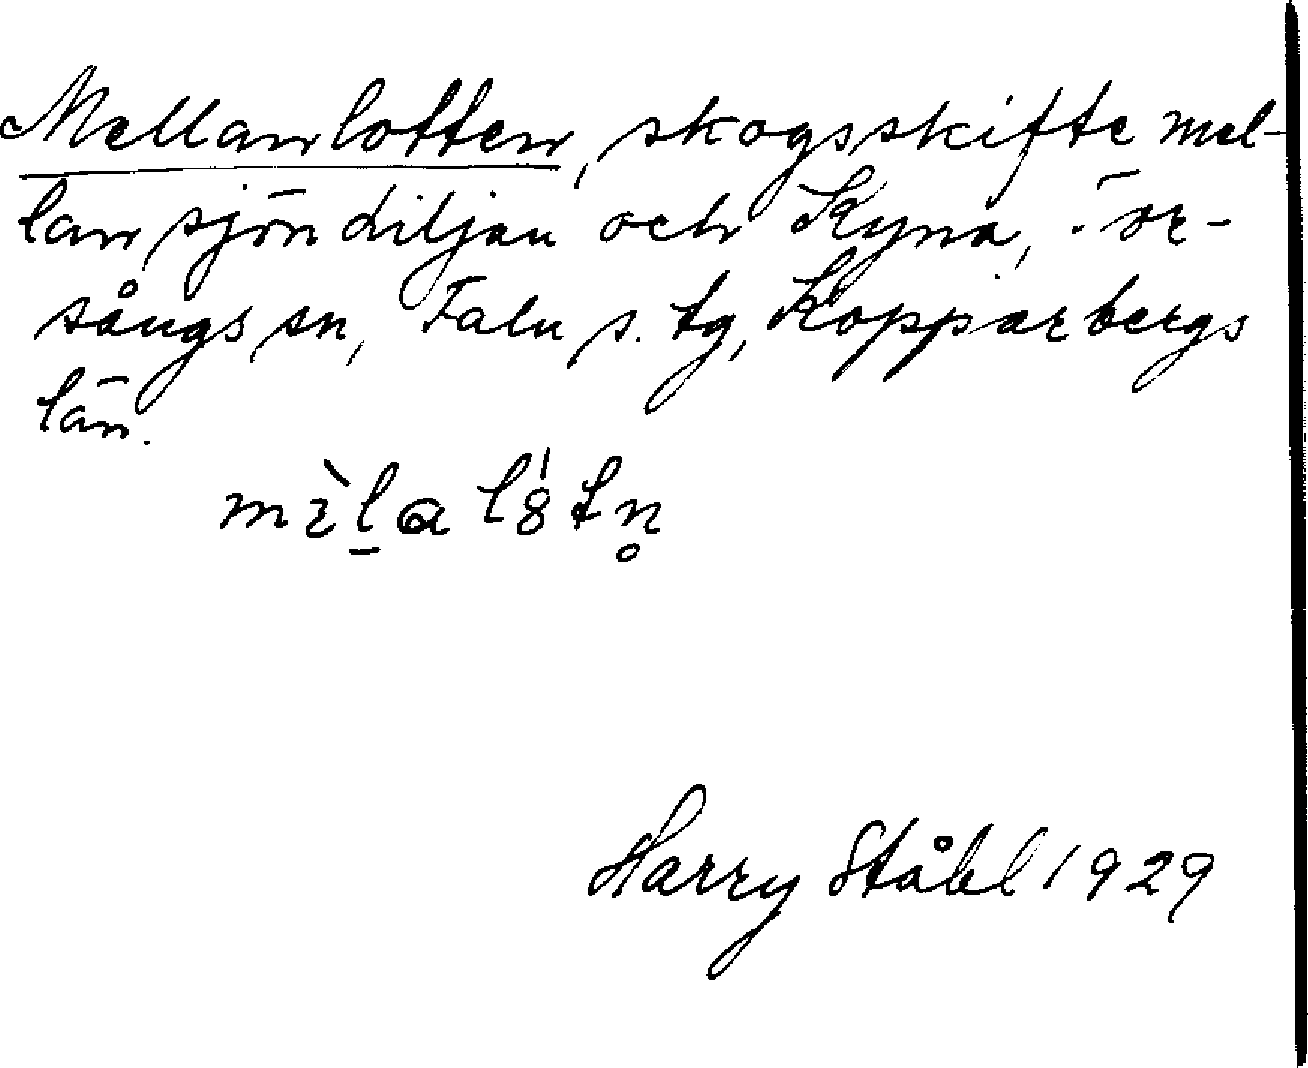 Mellanlotten, skogsskifte mel-
lan sjön Liljan och Kyna, Tor-
sångs sn, Falu s. tg, Kopparbergs
län.
Harry Ståhl 1929